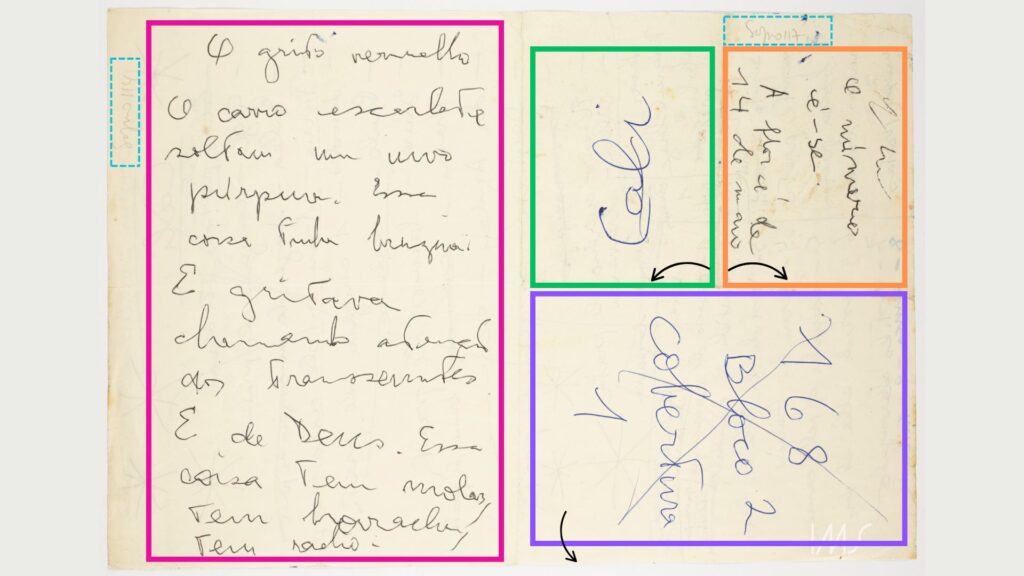 O grito vermelho
O carro escarlate
soltou um uivo
púrpura. Essa
coisa tinha buzina.
E gritava
chamando atenção
dos transeuntes
E de Deus. Essa
coisa tem molas,
tem borracha,
tem radio.
e número
é-se
A flor é de
14 de maio
168
Bloco 2
Cobertura
1
IMS